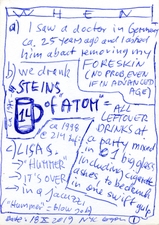 WHEN
a) I saw a doctor in Germany
ca. 25 years ago and I asked
him about removing my
FORESKIN
(NO PROB, EVEN
IF IN ADVANCED
AGE)
b) we drank
"STEINS
of ATOM" =
1L
ALL
LEFTOVER
DRINKS at
a party mixed
in a big glass
including cigarette
ashes to be drunk
in one swift
gulp
ca 1998
c) LISA S.
"HUMMER"
IT'S OVER
in a Jacuzzi
("Hummer" = blow job)
Date: 18 X 2019 NYC
1